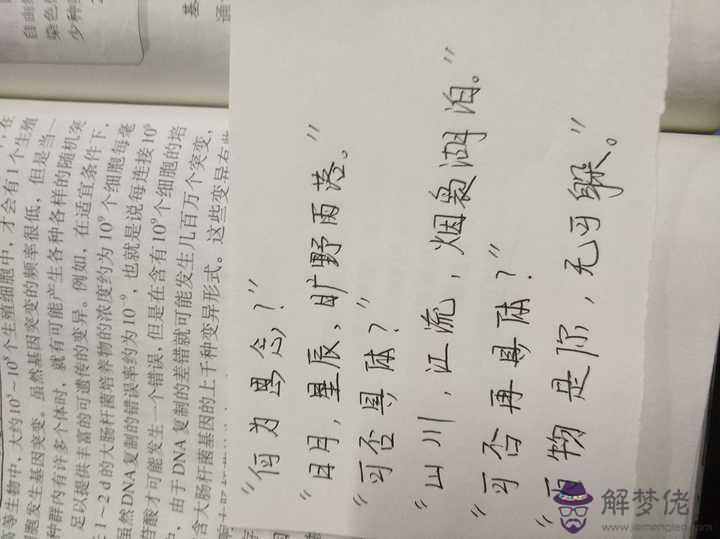 "何为思念？"
"日月，星辰，旷野雨落。"
"可否具体？"
"山川，江流，烟袅湖泊。"
"可否再具体？"
"万物是你，无可躲。"
自由
染色
少种
基
通
高等生物中，大约10⁵~10⁸个生殖细胞中，才会有1个生殖
细胞发生基因突变。虽然基因突变的频率很低，但是当一
种群内有许多个体时，就有可能产生各种各样的随机突
足以提供丰富的可遗传的变异。例如，在适宜条件下，
1~2 d的大肠杆菌培养物的浓度约为10⁹个细胞每毫
虽然DNA复制的错误率约为10⁻⁹，也就是说每连接10⁹
苷酸才可能发生一个错误，但是在含有10⁹个细胞的培
中，由于DNA复制的差错就可能发生几百万个突变，
含大肠杆菌基因的上千种变异形式。这些变异有些
解梦佬
www.jiemenglao.com